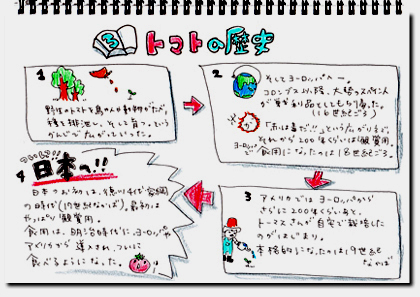 3 トマトの歴史
1
野性のトマトを鳥や動物がたべ
種を排泄し、そこで育つ。という
かんじで広がっていった。
2
そしてヨーロッパへ。
コロンブス以降、大勢のスペイン人
が
品としてもち帰った。
(16世紀ごろ)
「赤は毒だ!!」という
それから200年くらいは観賞用。
ヨーロッパで食用になったのは18世紀ごろ。
3
アメリカではヨーロッパから
さらに200年くらいあと、
トーマスさんが自宅で栽培した
のがはじまり。
本格的になったのは19世紀
なかば
4
ついに!!
日本へ!!
日本でお初は、徳川4代家綱
の時代(17世紀なかば)。最初は
やっぱり観賞用。
食用は、明治時代に、ヨーロッパや
アメリカから導入され、ついに
食べるようになった。